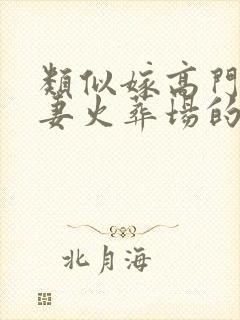 類似嫁高門
妻火葬場的
北月海